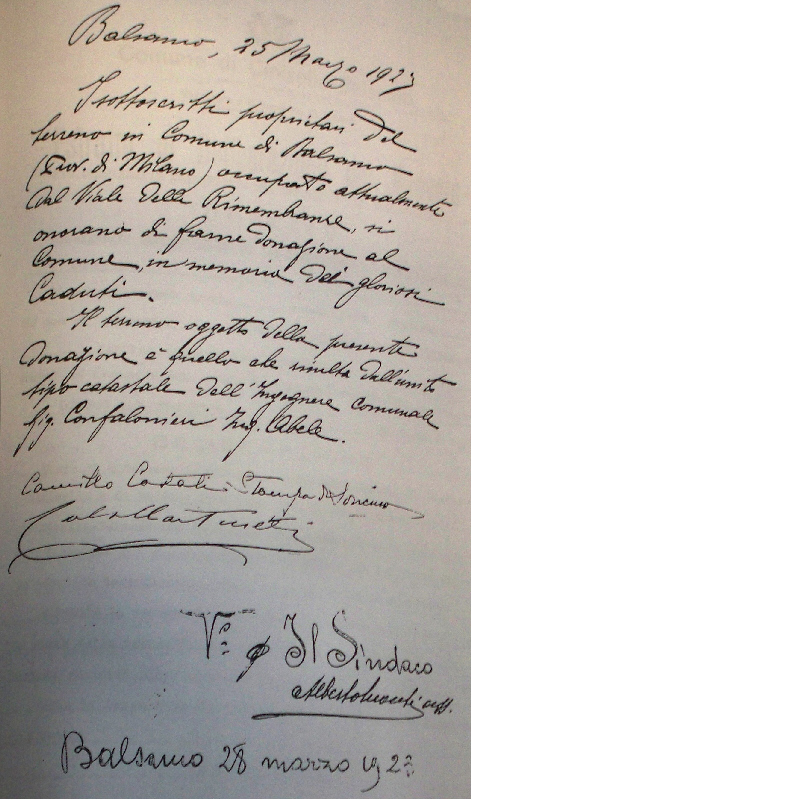 Balsamo, 25 Marzo 1923
I sottoscritti proprietari del
terreno in Comune di Balsamo
(Prov. di Milano) occupato attualmente
dal Viale delle Rimembranze, si
onorano di farne donazione al
Comune, in memoria dei gloriosi
Caduti.
Il terreno oggetto della presente
donazione è quello che risulta dall'unito
tipo catastale dell'Ingegnere comunale
Sig. Confalonieri Ing. Abele.
Camillo Casati Stampa di Soncino
V° Il Sindaco
Balsamo 28 marzo 1923